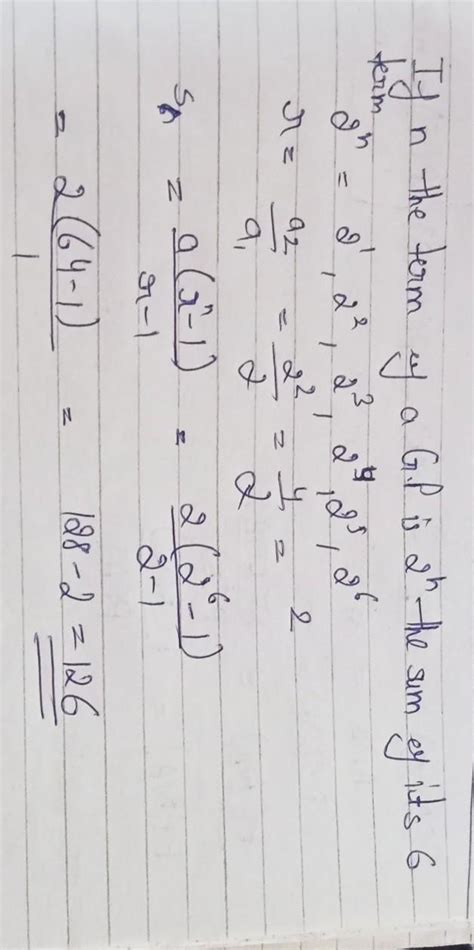 If n the term of a G.P is 2ⁿ the sum of its 6
term
2ⁿ = 2¹, 2², 2³, 2⁴, 2⁵, 2⁶
r = a₂/a₁ = 2²/2 = 4/2 = 2
Sₙ = a(rⁿ-1)/r-1 = 2(2⁶-1)/2-1
= 2(64-1)/1 = 128-2 = 126